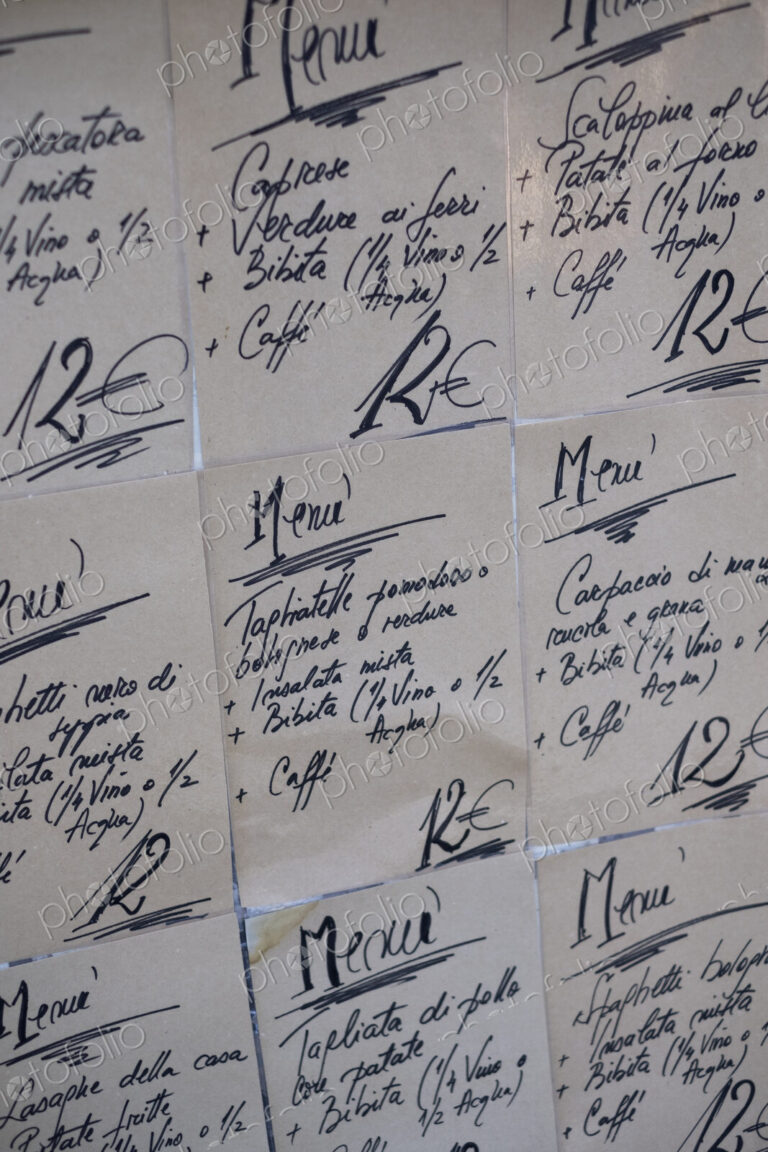 mista
1/4 Vino o 1/2
Acqua)
12€
Menù
Caprese
+ Verdure ai ferri
+ Bibita (1/4 Vino o 1/2
Acqua)
+ Caffé
12€
Scaloppina al
+ Patate al forno
+ Bibita (1/4 Vino o
Acqua)
+ Caffé
12€
seppia
mista
(1/4 Vino o 1/2
Acqua)
12
Menù
Tagliatelle pomodoro o
bolognese o verdure
+ Insalata mista
+ Bibita (1/4 Vino o 1/2
Acqua)
+ Caffé
12€
Menù
Carpaccio di
rucola e grana
+ Bibita (1/4 Vino o
Acqua)
+ Caffé
12€
Menù
Lasagne della casa
Patate fritte
(1/4 Vino o 1/2
Menù
Tagliata di pollo
con patate
+ Bibita (1/4 Vino o
1/2 Acqua)
Caffé
Menù
Spaghetti
+ Insalata mista
+ Bibita (1/4 Vino o
Acqua)
+ Caffé
12
photofolio